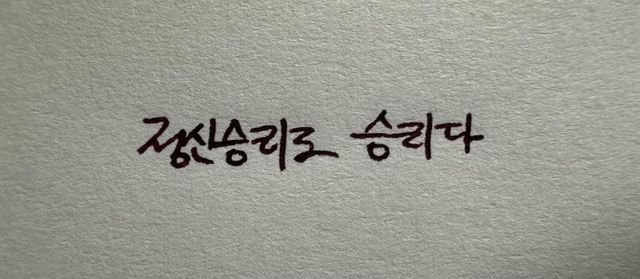 정신승리로 승리다